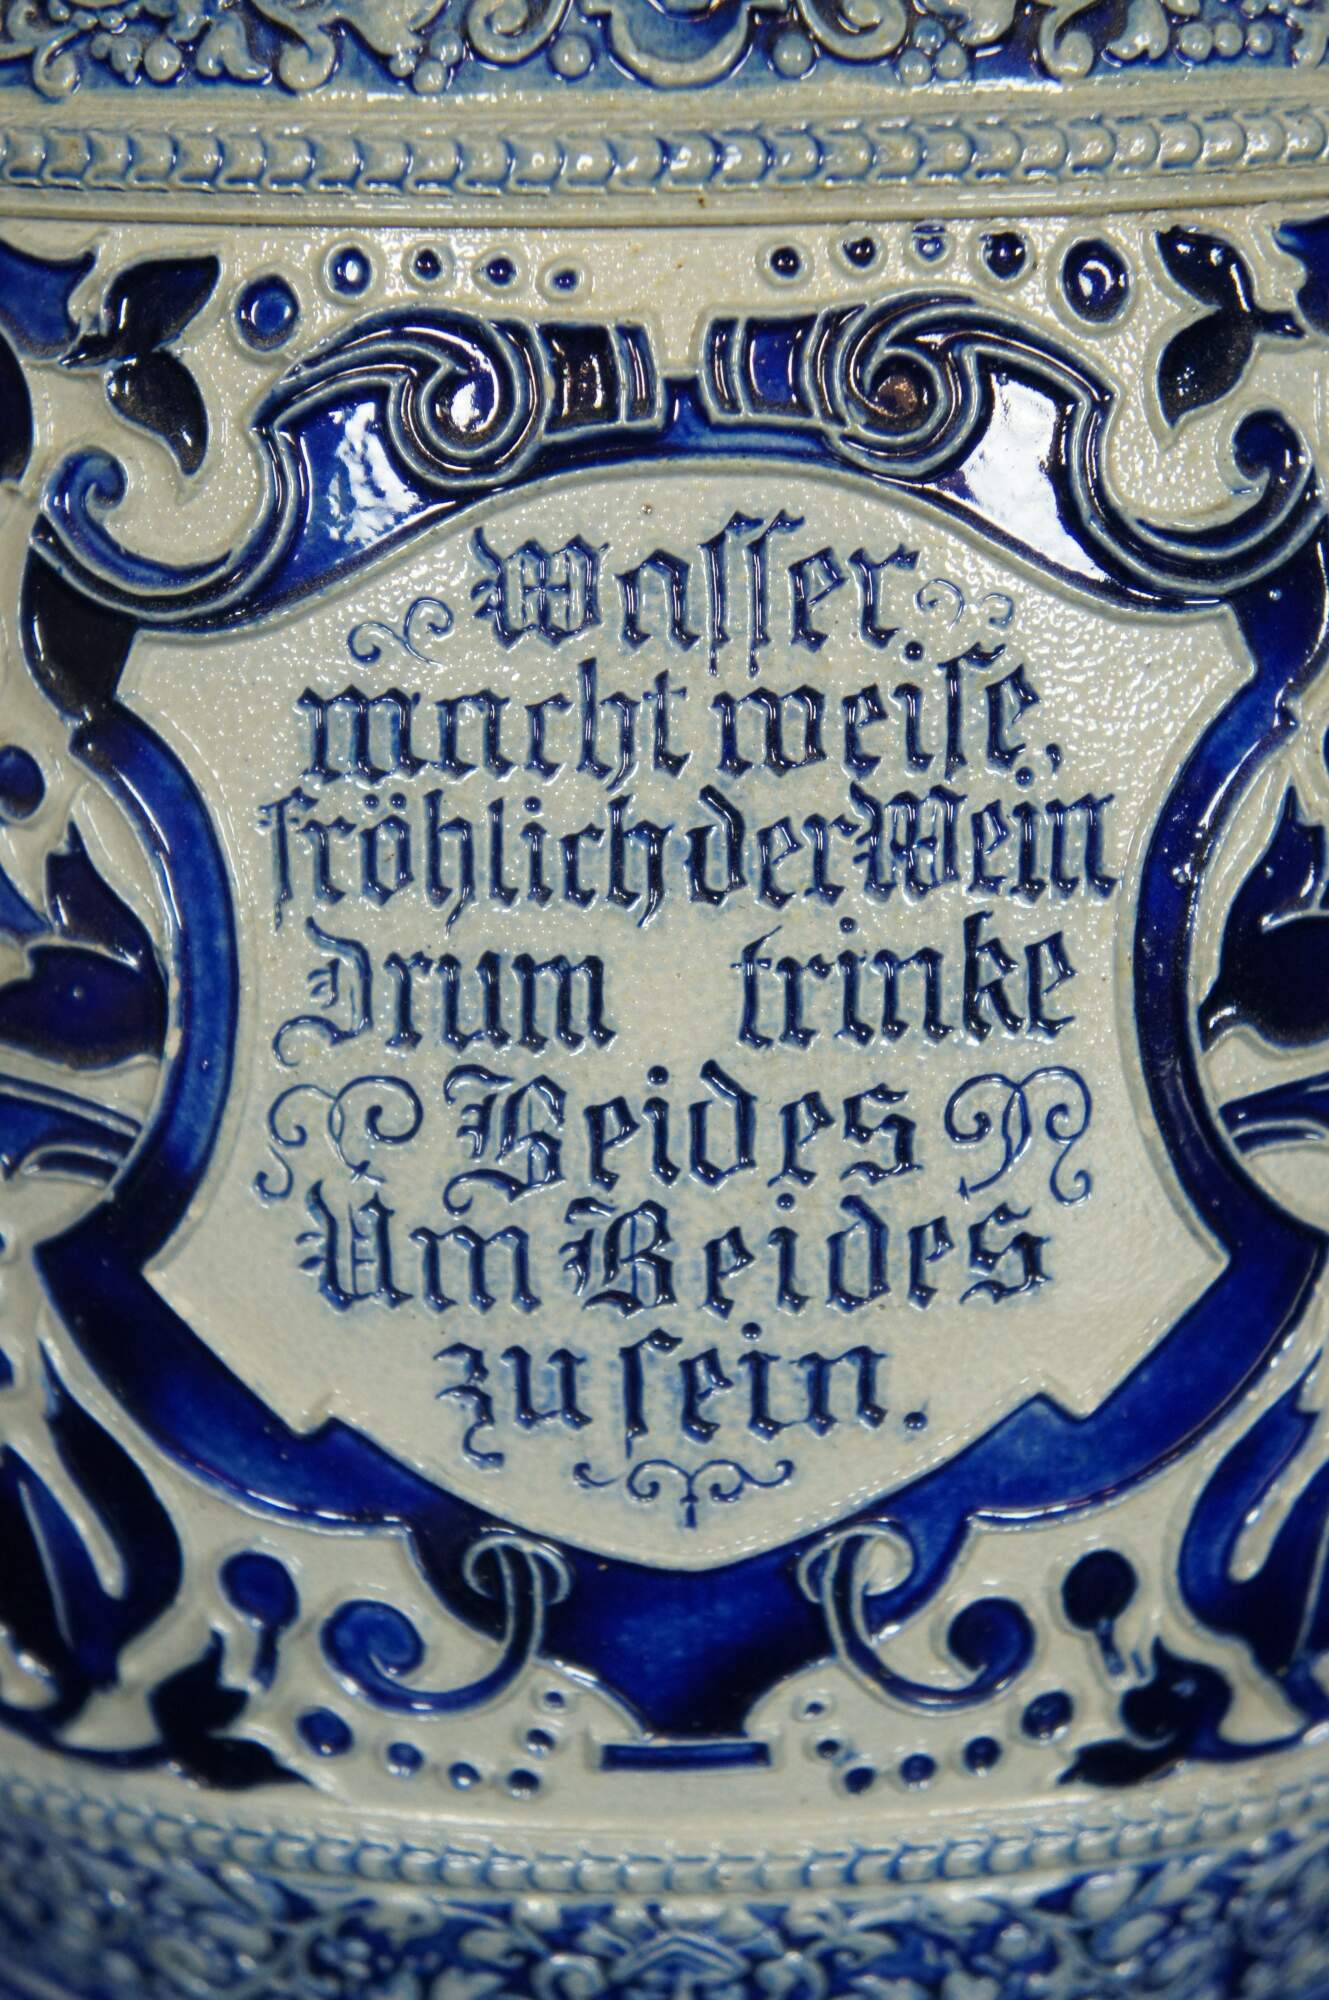 Waſſer
macht weiſe,
fröhlich der Wein
Drum trinke
Beides
Um Beides
zu ſein.